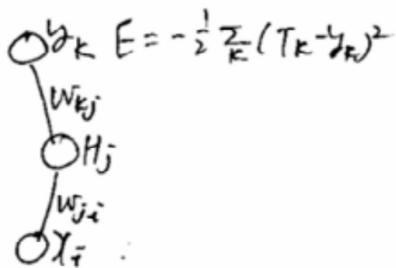 y_k E = -1/2 Σ_k (T_k - y_k)²
w_kj
H_j
w_ji
x_i